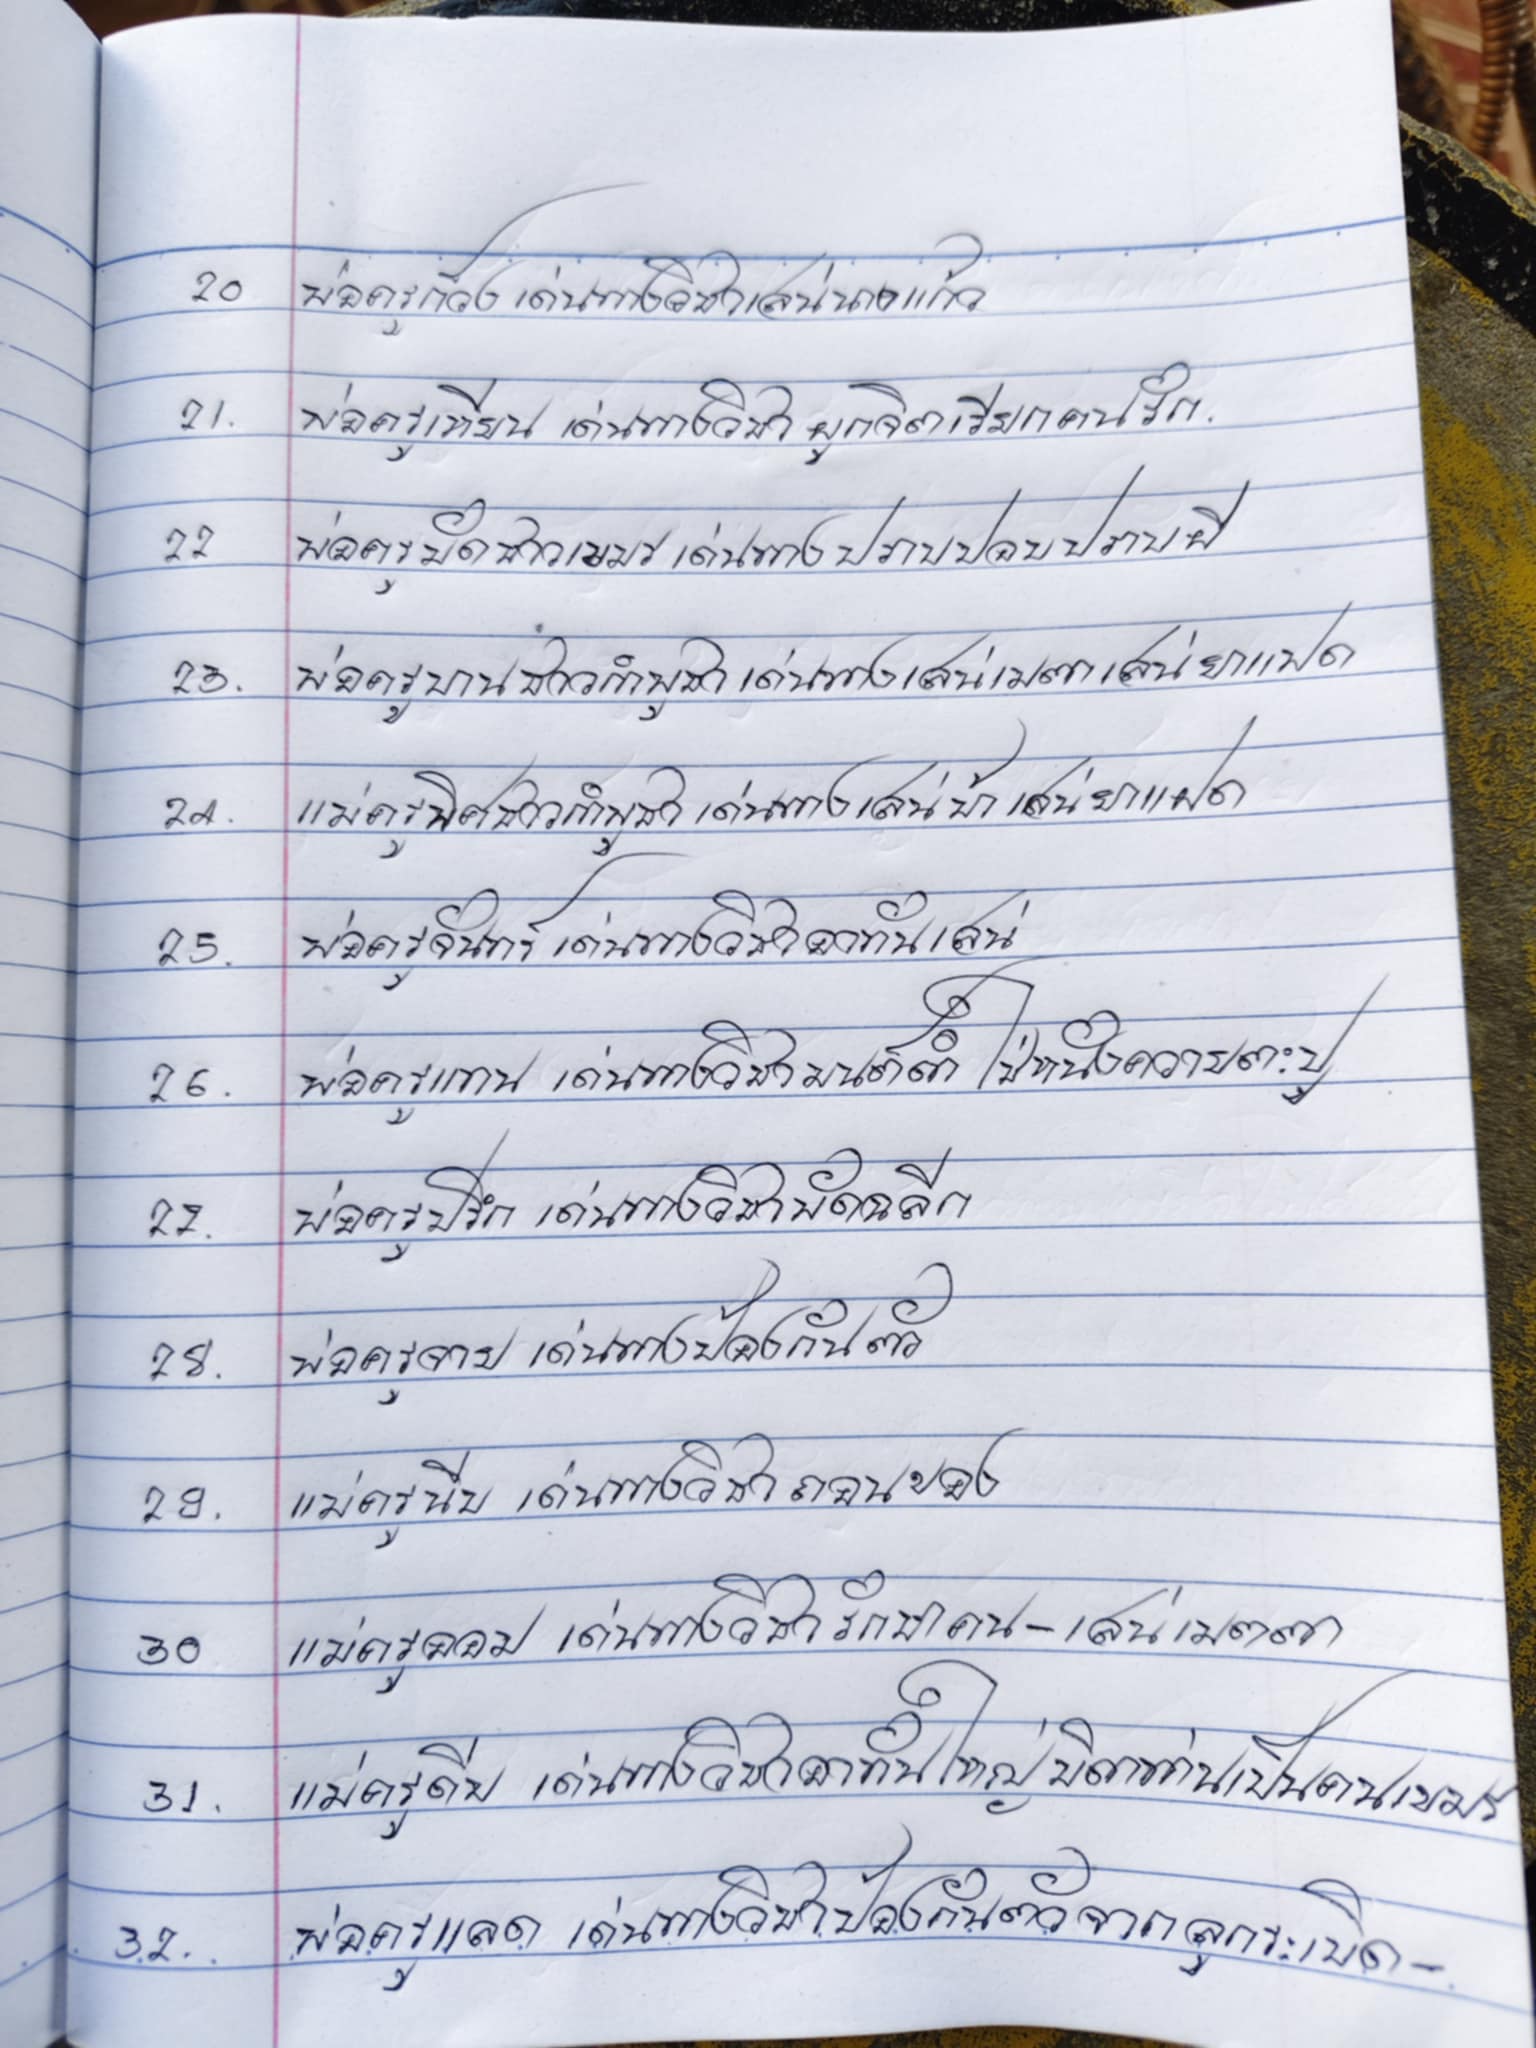 20 พ่อครูก้วง เด่นทางวิชาเสน่นางแก้ว
21. พ่อครูเทียน เด่นทางวิชา ผูกจิตเรียกคนรัก.
22 พ่อครูบัดชาวเขมร เด่นทาง ปราบปอบปราบผี
23. พ่อครูบานชาวกำพูชา เด่นทางเสน่เมตาเสน่ยาแฝด
24. แม่ครูพิศชาวกำพูชา เด่นทางเสน่ข้าเสน่ยาแฝด
25. พ่อครูจันทร์ เด่นทางวิชาอาทันเสน่
26. พ่อครูแทน เด่นทางวิชามนต์ดำ ไช่หนังควายตะปู
27. พ่อครูปริก เด่นทางวิชาพัดฉลีก
28. พ่อครูจาย เด่นทางป้องกันตัว
29. แม่ครูนีบ เด่นทางวิชา ถอนของ
30 แม่ครูออม เด่นทางวิชา รักษาคน-เสน่เมตตา
31. แม่ครูดีบ เด่นทางวิชาอาทันใหญ่บิดาท่านเป็นคนเขมร
32. พ่อครูแลด เด่นทางวิชาป้องกันตัวจากลูกระเบิด-